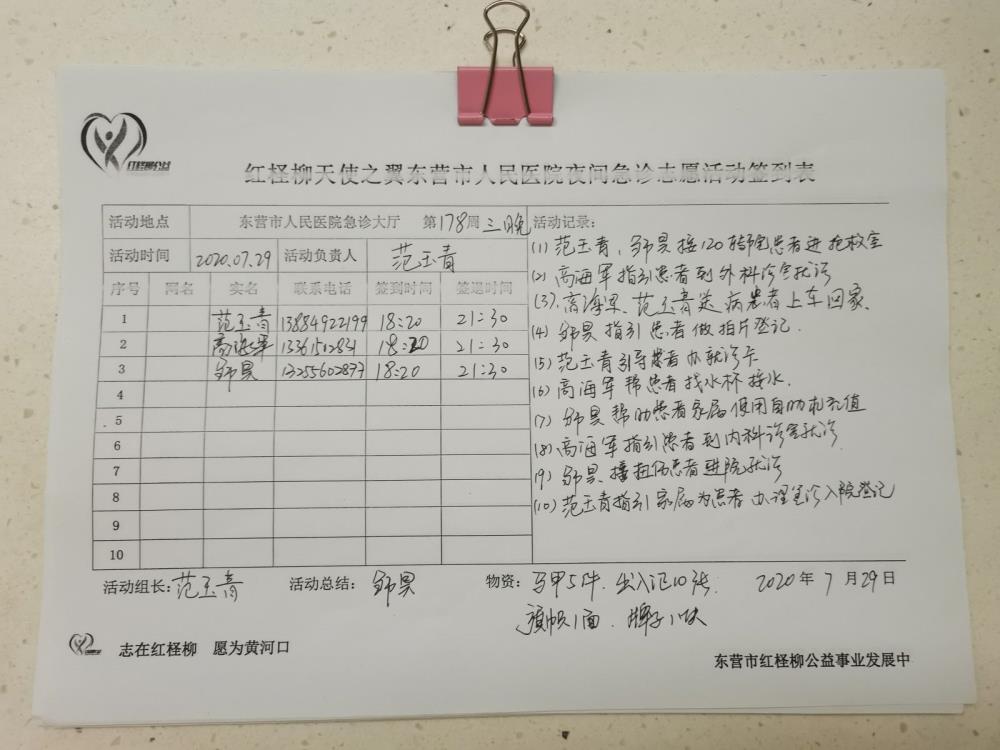 红柽柳公益
红柽柳天使之翼东营市人民医院夜间急诊志愿活动签到表
活动地点 东营市人民医院急诊大厅 第178周三晚
活动时间 2020.07.29 活动负责人 范玉青
序号 网名 实名 联系电话 签到时间 签退时间
1 范玉青 13884922199 18:20 21:30
2 高海军 18:20 21:30
3 邹昊 13255602877 18:20 21:30
4
5
6
7
8
9
10
活动记录:
(1) 范玉青,邹昊接120转院患者进抢救室
(2) 高海军指引患者到外科诊室就诊
(3) 高海军、范玉青送病患者上车回家、
(4) 邹昊指引患者做拍片登记.
(5) 范玉青引导患者办就诊卡
(6) 高海军帮患者找水杯接水.
(7) 邹昊帮助患者家属使用自助机充值
(8) 高海军指引患者到内科诊室就诊
(9) 邹昊接扭伤患者进院就诊
(10) 范玉青指引家属为患者办理急诊入院登记
活动组长:范玉青 活动总结:邹昊 物资:马甲5件.出入证10张. 2020年7月29日
旗帜1面.牌子1块
志在红柽柳 愿为黄河口
东营市红柽柳公益事业发展中